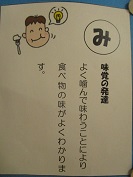 み
味覚の発達
よく噛んで味わうことにより
食べ物の味がよくわかりま
す。